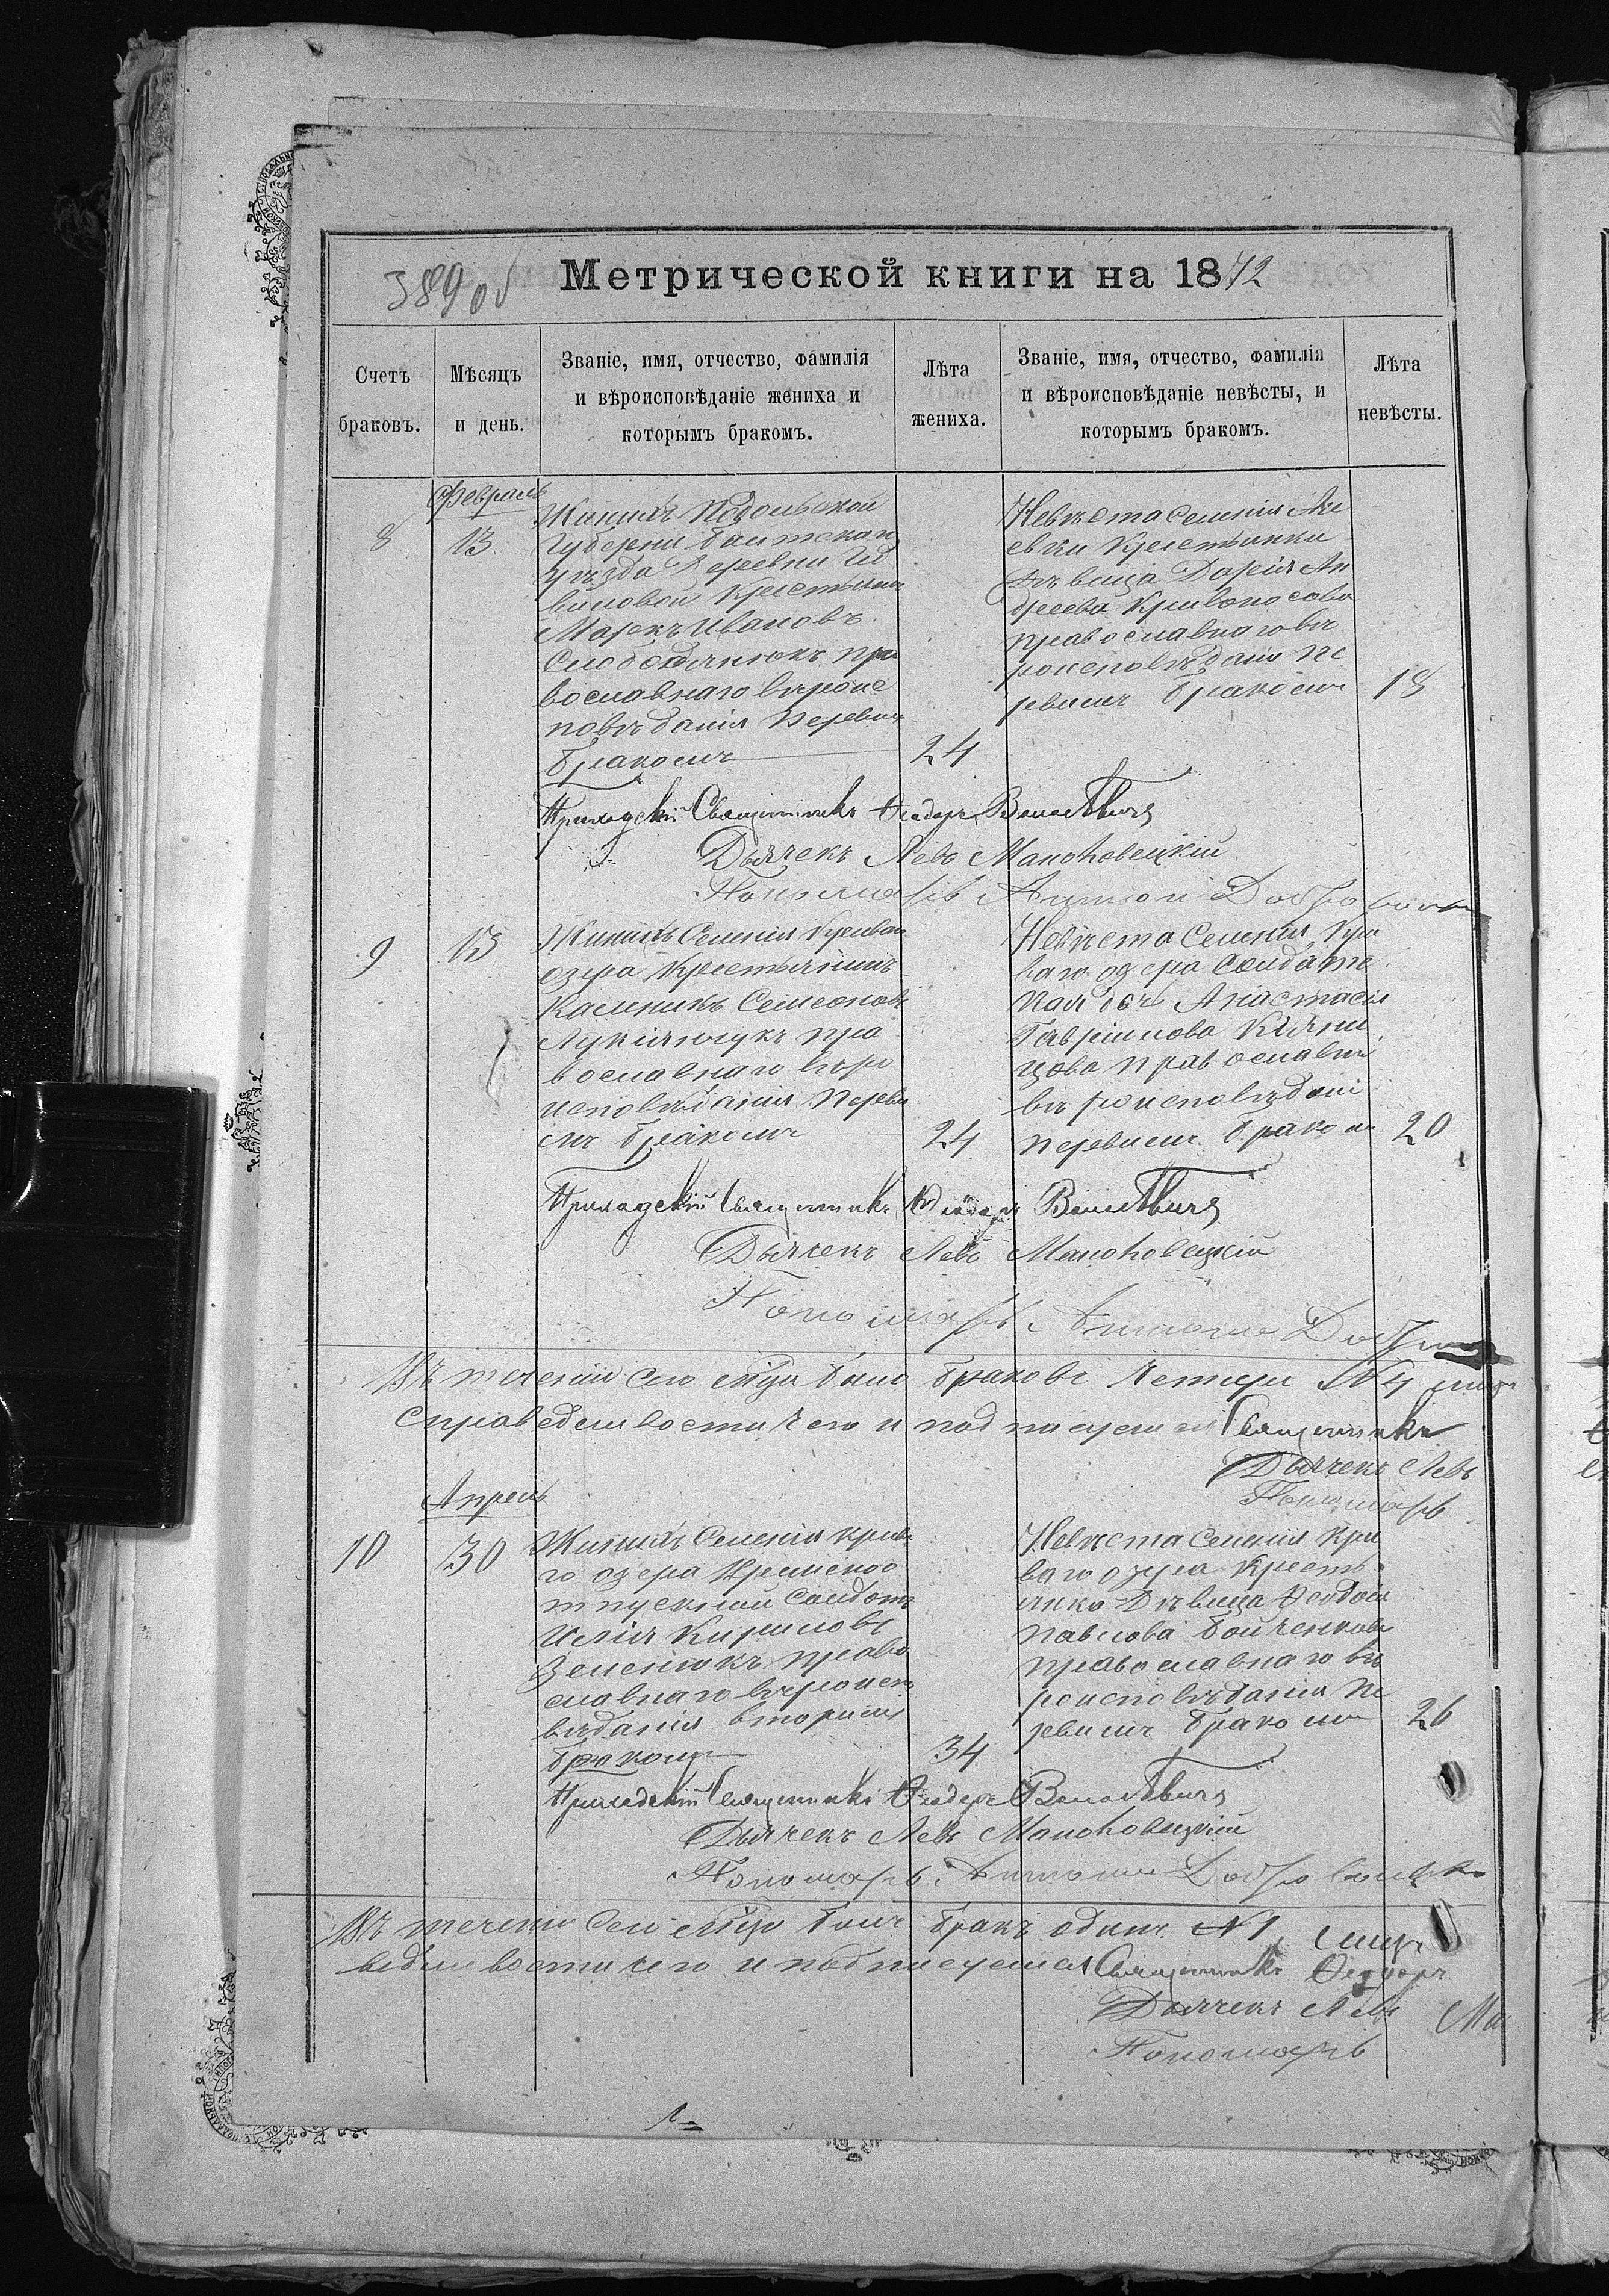 389 об
Метрической книги на 1872
Счетъ браковъ.
Мѣсяцъ и день.
Званіе, имя, отчество, фамилія
и вѣроисповѣданіе жениха и
которымъ бракомъ.
Лѣта жениха.
Званіе, имя, отчество, фамилія
и вѣроисповѣданіе невѣсты, и
которымъ бракомъ.
Лѣта невѣсты.
Февраль
8
13
Жинихъ Подольской
Губерни Балтскаго
уѣзда Деревни
виловой Крестьянинъ
Марекъ Ивановъ
Слободянюкъ пра
вославнаго вѣроис
повѣданія Первымъ
бракомъ
24
Невѣста Селенія
евки Крестьянка
Дѣвица Дарія Ан
дреева Кривоносова
православнаго вѣ
роисповѣданія пе
рвымъ бракомъ
18
Приходскій Священникъ Феодоръ
Дьячекъ Левъ Маноховецкій
Пономарь Антоній
9
13
Жинихъ Селенія Криваго
озера Крестьянинъ
Калникъ Семеоновъ
Лукіянчукъ пра
вославнаго вѣро
исповѣданія Первы
мъ бракомъ
24
Невѣста Селенія Кри
ваго озера Солдатс
кая дочь Анастасія
Гавриилова
цова православна
вѣроисповѣдані
первымъ бракомъ
20
Приходскій Священникъ Феодоръ
Дьячекъ Левъ Маноховецкій
Пономарь Антоній
Въ теченіи сего мѣца было браковъ Четыри №4
справедливости чего и подписуемся Священникъ
Дьячекъ Левъ
Пономарь
Апрель
10
30
Жинихъ Селенія Крива
го озера Временноо
тпускной Солдатъ
Илія Кириловъ
Зеленюкъ право
славнаго вѣроиспо
вѣданія вторымъ
бракомъ
34
Невѣста Селенія Кри
ваго озера Кресть
янка Дѣвица Феодосія
Павлова Бойченкова
православнаго вѣ
роисповѣданія Пе
рвымъ бракомъ
26
Приходскій Священникъ Феодоръ
Дьячекъ Левъ Маноховецкій
Пономарь Антоній
Въ теченіи сего мѣца былъ бракъ одинъ №1
ведливости чего и подписуемся Священникъ Феодоръ
Дьячекъ Левъ Ма
Пономарь